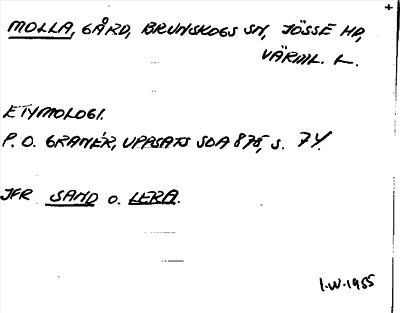 MOLLA, GÅRD, BRUNSKOGS SN, JÖSSE HD,
VÄRML. L.
ETYMOLOGI.
P. O. GRANÉR, UPPSATS SOA 875, S. 74.
JFR SAND O. LERA.
I.W. 1955